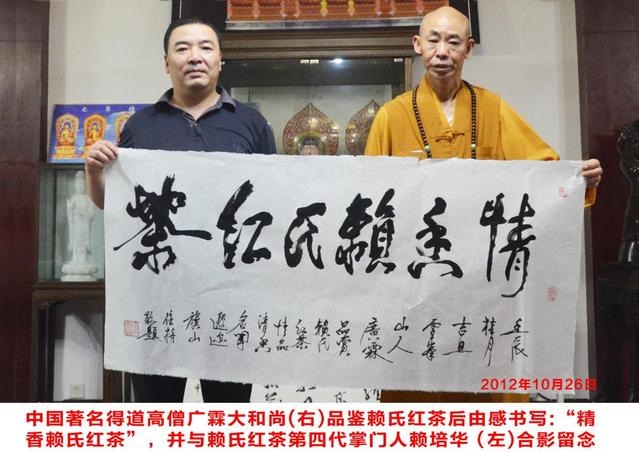 精香賴氏紅茶
壬辰
桂月
吉旦
山人
廣霖
品賞
賴氏
紅茶
精品
清香
旗山
住持
敬題
2012年10月26日
中国著名得道高僧广霖大和尚(右)品鉴赖氏红茶后由感书写:“精
香赖氏红茶”，并与赖氏红茶第四代掌门人赖培华(左)合影留念